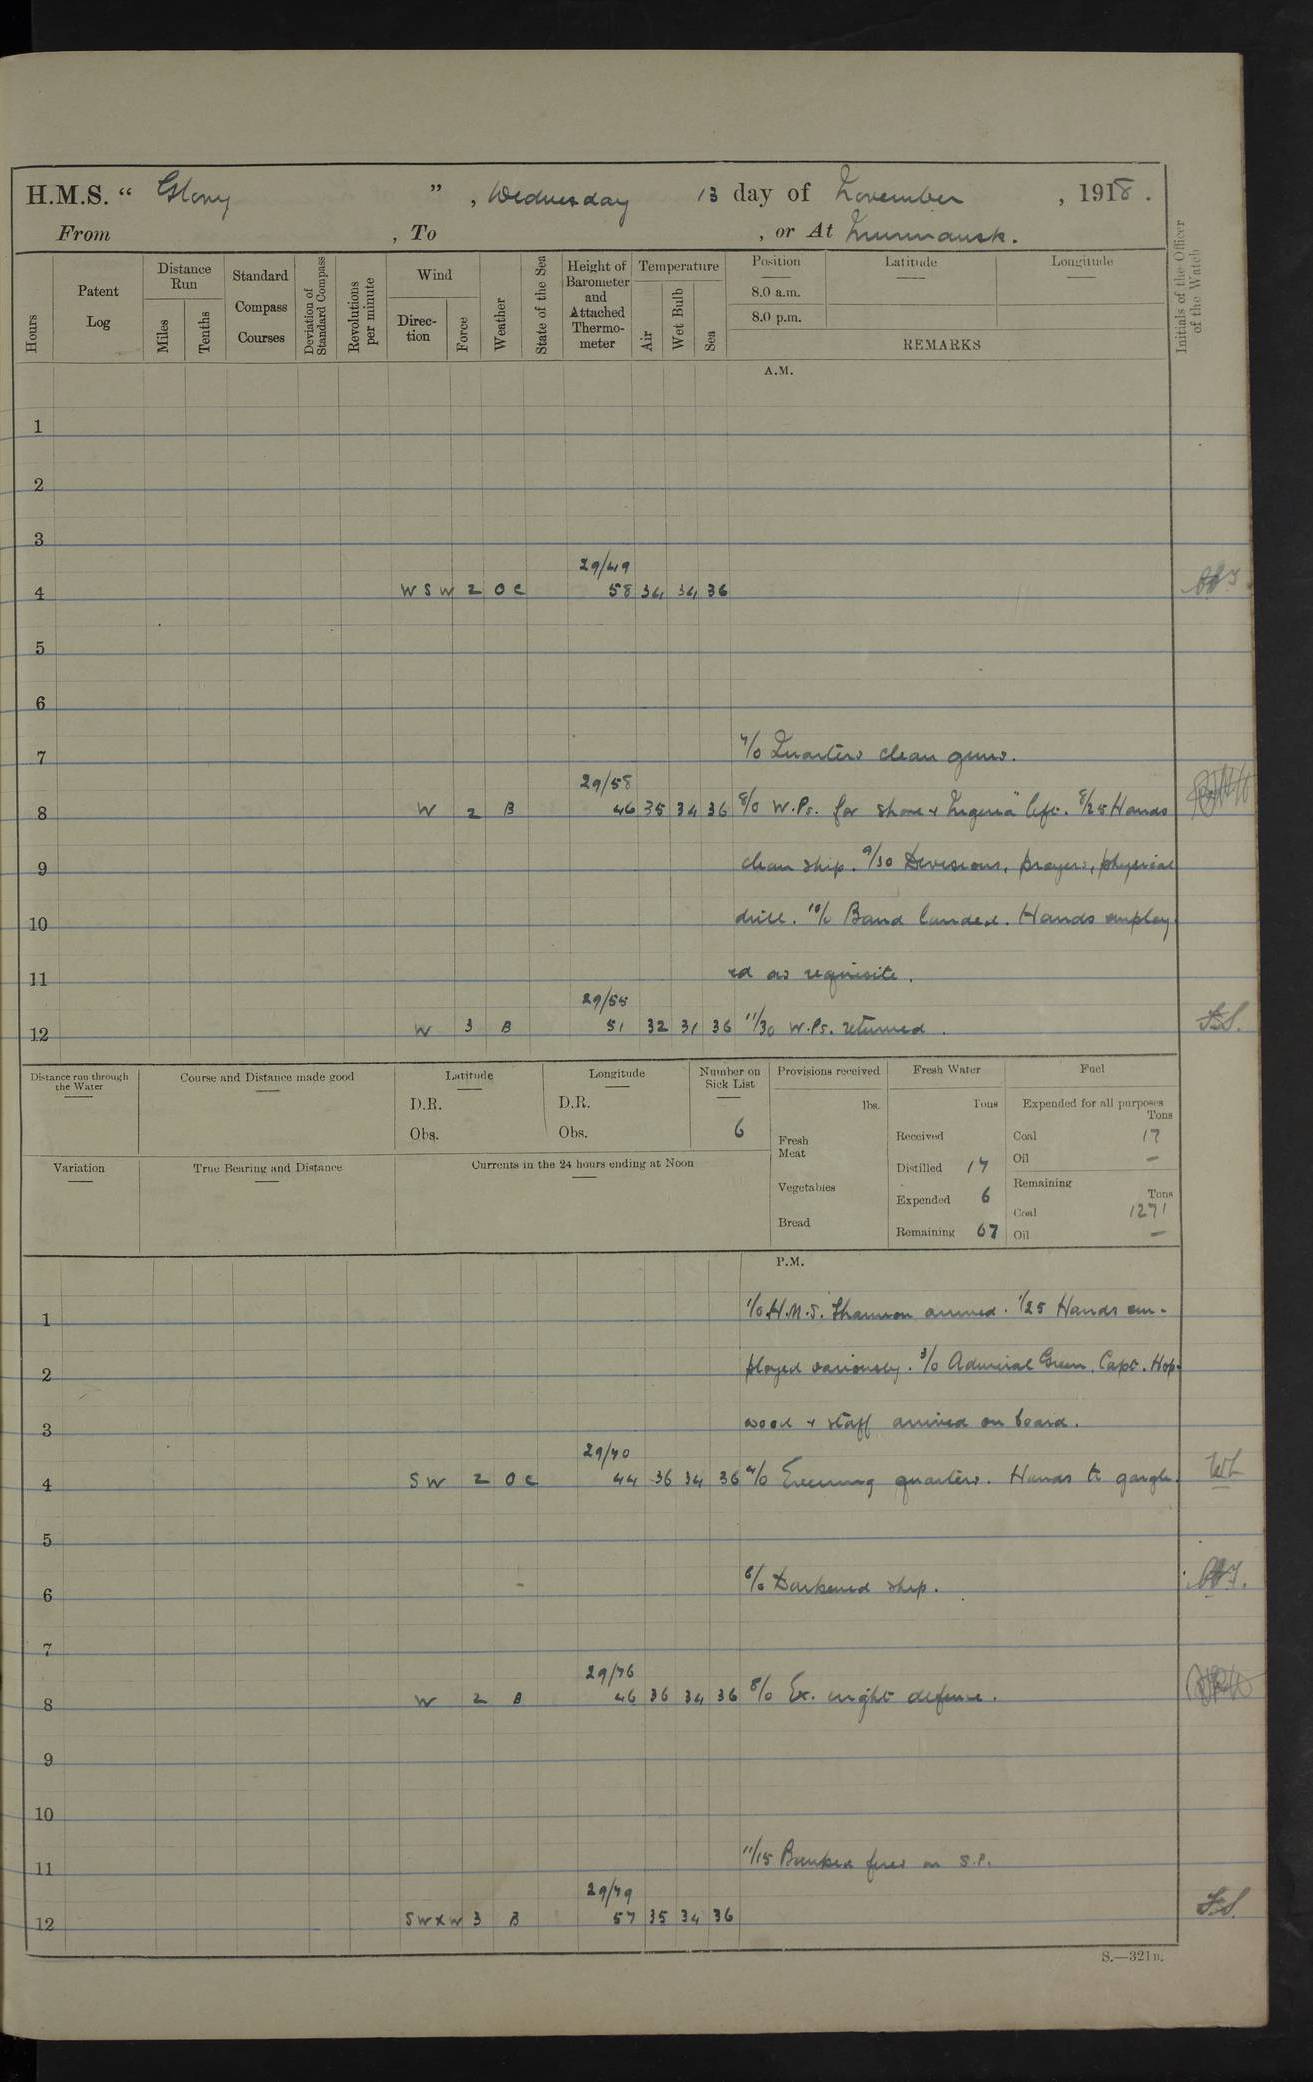 H.M.S. “ Glory ” , Wednesday 13 day of November , 1918 .
From , To , or At Murmansk.
Hours
Patent Log
Distance Run
Miles
Tenths
Standard Compass Courses
Deviation of Standard Compass
Revolutions per minute
Wind
Direction
Force
Weather
State of the Sea
Height of Barometer and Attached Thermometer
Temperature
Air
Wet Bulb
Sea
Position
8.0 a.m.
8.0 p.m.
Latitude
Longitude
REMARKS
Initials of the Officer of the Watch
A.M.
1
2
3
29/49
4 W S W 2 O C 58 34 34 36
5
6
7 7/0 Quarters clean guns.
29/58
8 W 2 B 46 35 34 36 8/0 W.Ps. for shore & "Nigeria" left. 8/25 Hands
9 clean ship. 9/30 Divisions, prayers, physical
10 drill. 10/0 Band landed. Hands employ-
11 ed as requisite.
29/55
12 W 3 B 51 32 31 36 11/30 W.Ps. returned. F.S.
Distance run through the Water
Course and Distance made good
Latitude
D.R.
Obs.
Longitude
D.R.
Obs.
Number on Sick List
6
Provisions received
lbs.
Fresh Meat
Vegetables
Bread
Fresh Water
Tons
Received
Distilled 17
Expended 6
Remaining 67
Fuel
Expended for all purposes
Tons
Coal 17
Oil —
Remaining
Tons
Coal 1271
Oil —
Variation
True Bearing and Distance
Currents in the 24 hours ending at Noon
P.M.
1 1/0 H.M.S. Shannon arrived. 1/25 Hands em-
2 ployed variously. 3/0 Admiral Green, Capt. Hop-
3 wood & staff arrived on board.
29/70
4 S W 2 O C 44 36 34 36 4/0 Evening quarters. Hands to gargle. WL
5
6 6/0 Darkened ship.
7
29/76
8 W 2 B 46 36 34 36 8/0 Ex. night defence.
9
10
11 11/15 Banked fires in S.P.
29/79
12 S W x W 3 B 57 35 34 36 F.S.
S.—321B.